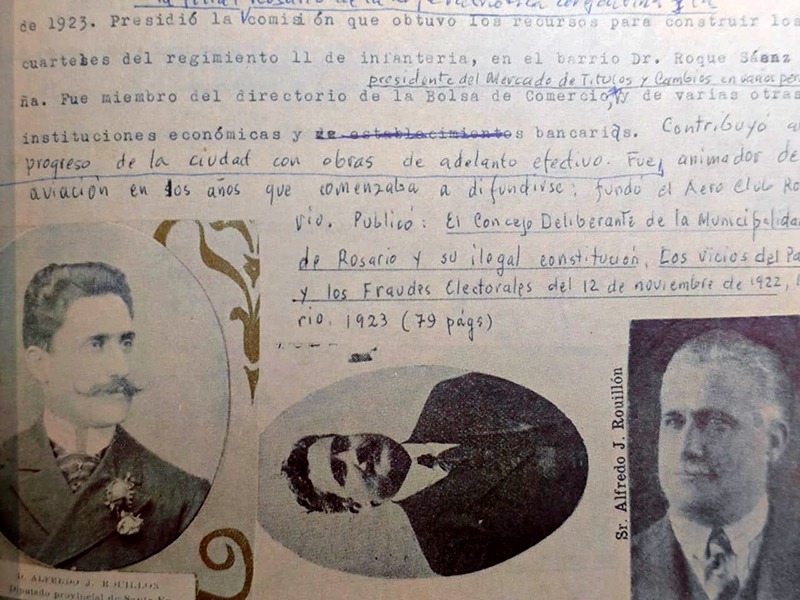 la filial Rosario de la
de 1923. Presidió la comisión que obtuvo los recursos para construir los
cuarteles del regimiento 11 de infanteria, en el barrio Dr. Roque Sáenz
presidente del Mercado de Titulos y Cambios en varios per
ña. Fue miembro del directorio de la Bolsa de Comercio, y de varias otras
instituciones económicas y de establecimientos bancarias. Contribuyó a
progreso de la ciudad con obras de adelanto efectivo. Fue, animador de
aviación en los años que comenzaba a difundirse; fundó el Aero Club Ro
rio. Publicó: El Concejo Deliberante de la Municipalida
de Rosario y su ilegal constitución. Los vicios del Pa
y los Fraudes Electorales del 12 de noviembre de 1922,
rio. 1923 (79 págs)
Sr. Alfredo J. Rouillón
D. ALFREDO J. ROUILLON
Diputado provincial de Santa